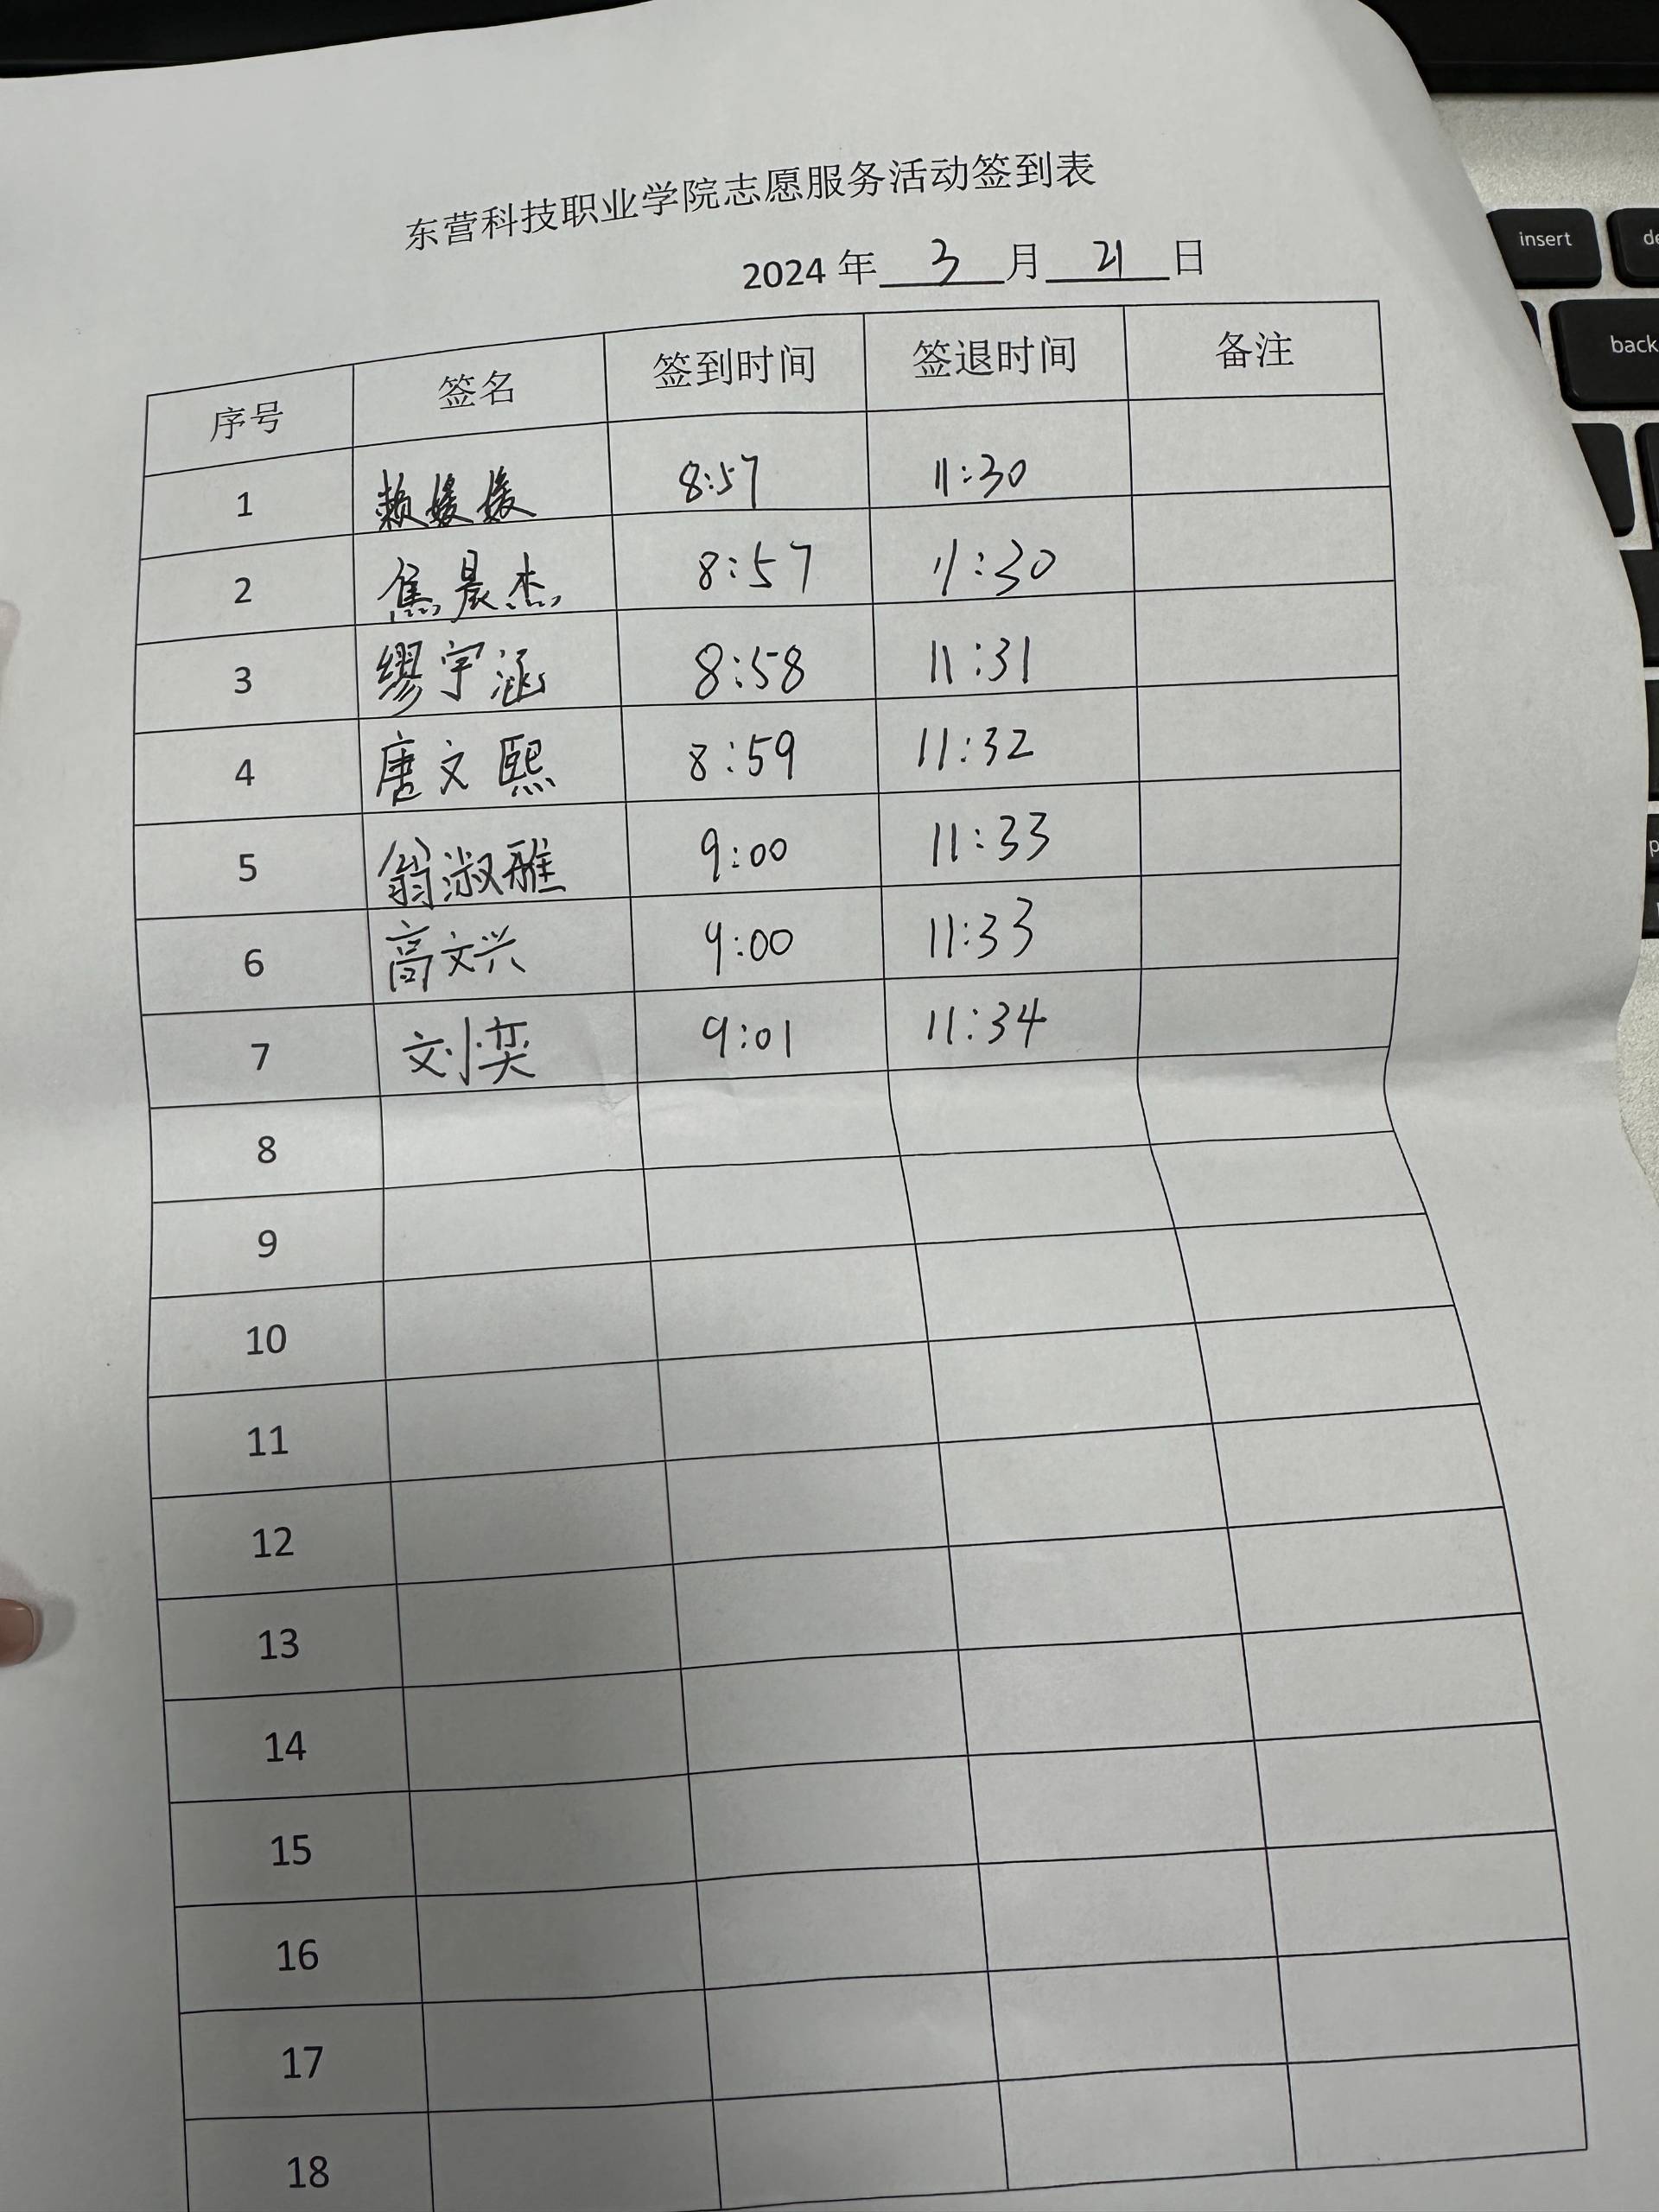 东营科技职业学院志愿服务活动签到表
2024 年 3 月 21 日
序号 签名 签到时间 签退时间 备注
1 赖媛媛 8:57 11:30
2 焦晨杰 8:57 11:30
3 缪宇涵 8:58 11:31
4 唐文熙 8:59 11:32
5 翁淑雅 9:00 11:33
6 高文兴 9:00 11:33
7 刘奕 9:01 11:34
8
9
10
11
12
13
14
15
16
17
18
insert
back